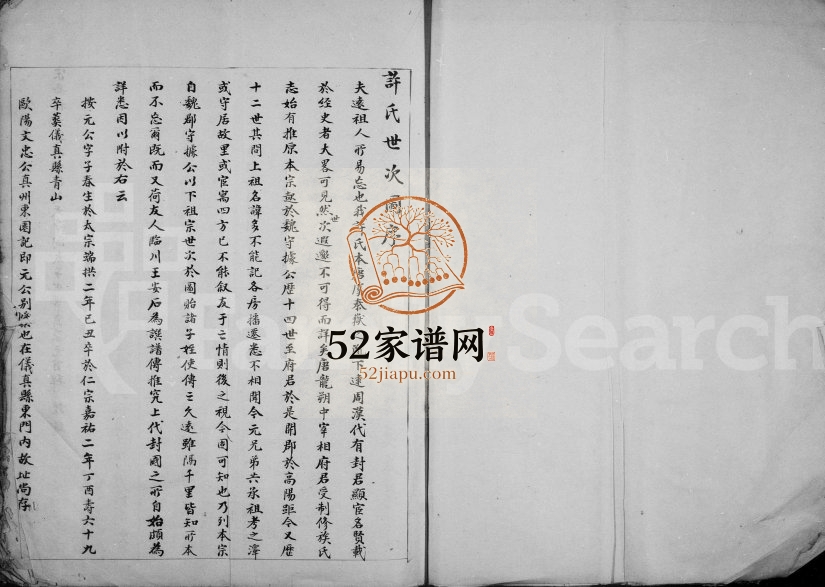 許氏世次圖序
夫遠祖人所易忘也我許氏本唐下達周漢代有封君顯宦名賢載
於經史者大畧可見然世次遐邈不可得而詳矣唐龍朔中宰相府君受制修族氏
志始有推原本宗起於魏守據公歷十四世至府君於是開郡於高陽距今又歷
十二世其間上祖名諱多不能記各房播遷悉不相聞今元兄弟六承祖考之澤
或守居故里或宦寓四方已不能叙友于之情則後之視今固可知也乃列本宗
自魏郡守據公以下祖宗世次於圖貽諸子姪使傳之久遠雖隔千里皆知所本
而不忘爾既而又荷友人臨川王安石為譔譜傳推究上代封國之所自始頗為
詳悉因以附於右云
按元公字子春生於太宗端拱二年已丑卒於仁宗嘉祐二年丁酉壽六十九
卒葬儀真縣青山
歐陽文忠公真州東園記即元公別墅也在儀真縣東門內故址尚存
52家谱网
52jiapu.com
FamilySearch